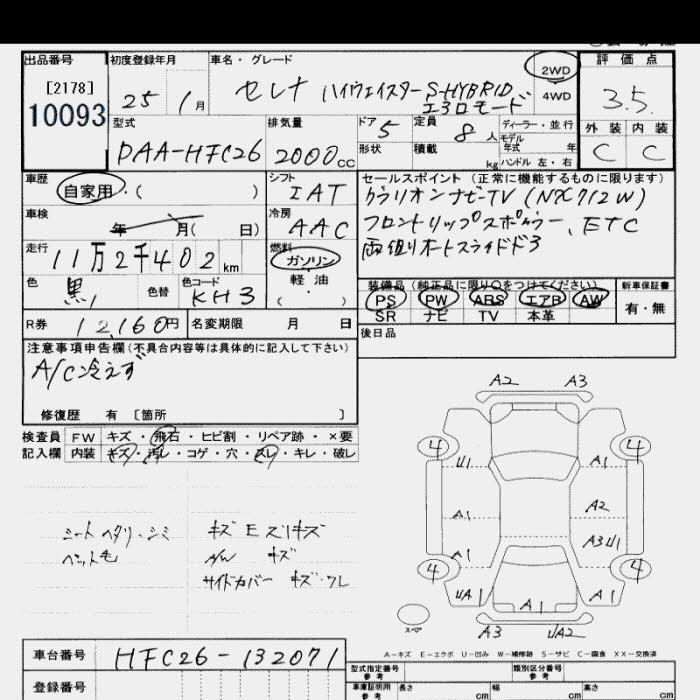 出品番号 初度登録年月 車名・グレード 2WD 評価点
[2178] 25 1月 セレナ ハイウェイスターS-HYBRID 4WD 3.5
10093 エアロモード
型式 排気量 ドア 5 定員 8人 ディーラー・並行 外装 内装
モデル年式 年
DAA-HFC26 2000cc 形状 積載 kg ハンドル 左・右 C C
車歴 自家用・( ) シフト IAT セールスポイント (正常に機能するものに限ります)
クラリオンナビ-TV (NX712W)
車検 年 月( 日) 冷房 AAC フロントリップスポイラー、ETC
走行 11万2千402km 燃料 ガソリン・軽油・( ) 両側オートスライドドア
色 黒 色替 色コード KH3 装備品 (純正品に限り○をつけてください) 新車保証書
PS PW ABS エアB AW 有・無
R券 12,160円 名変期限 月 日 SR ナビ TV 本革
注意事項申告欄(不具合内容等は具体的に記入して下さい) 後日品
A/C冷えず
修復歴 有 [箇所 ]
検査員 FW キズ・飛石・ヒビ割・リペア跡・×要
記入欄 内装 キズ・汚レ・コゲ・穴・スレ・キレ・破レ
シートヘタリ・シミ キズEズリキズ
ペット毛 A/W キズ
サイドカバー キズ・ワレ
A2 A3
4 4
U1 A1
A1 A2
A1 A3U1
4 4
UA1 A1 A1
スペア A3 UA2
A-キズ E-エクボ U-凹み W-補修跡 S-サビ C-腐食 XX-交換済
車台番号 HFC26-132071
型式指定番号 参考 類別区分番号 参考
登録番号 車庫証明用 参考 長さ cm 幅 cm 高さ cm